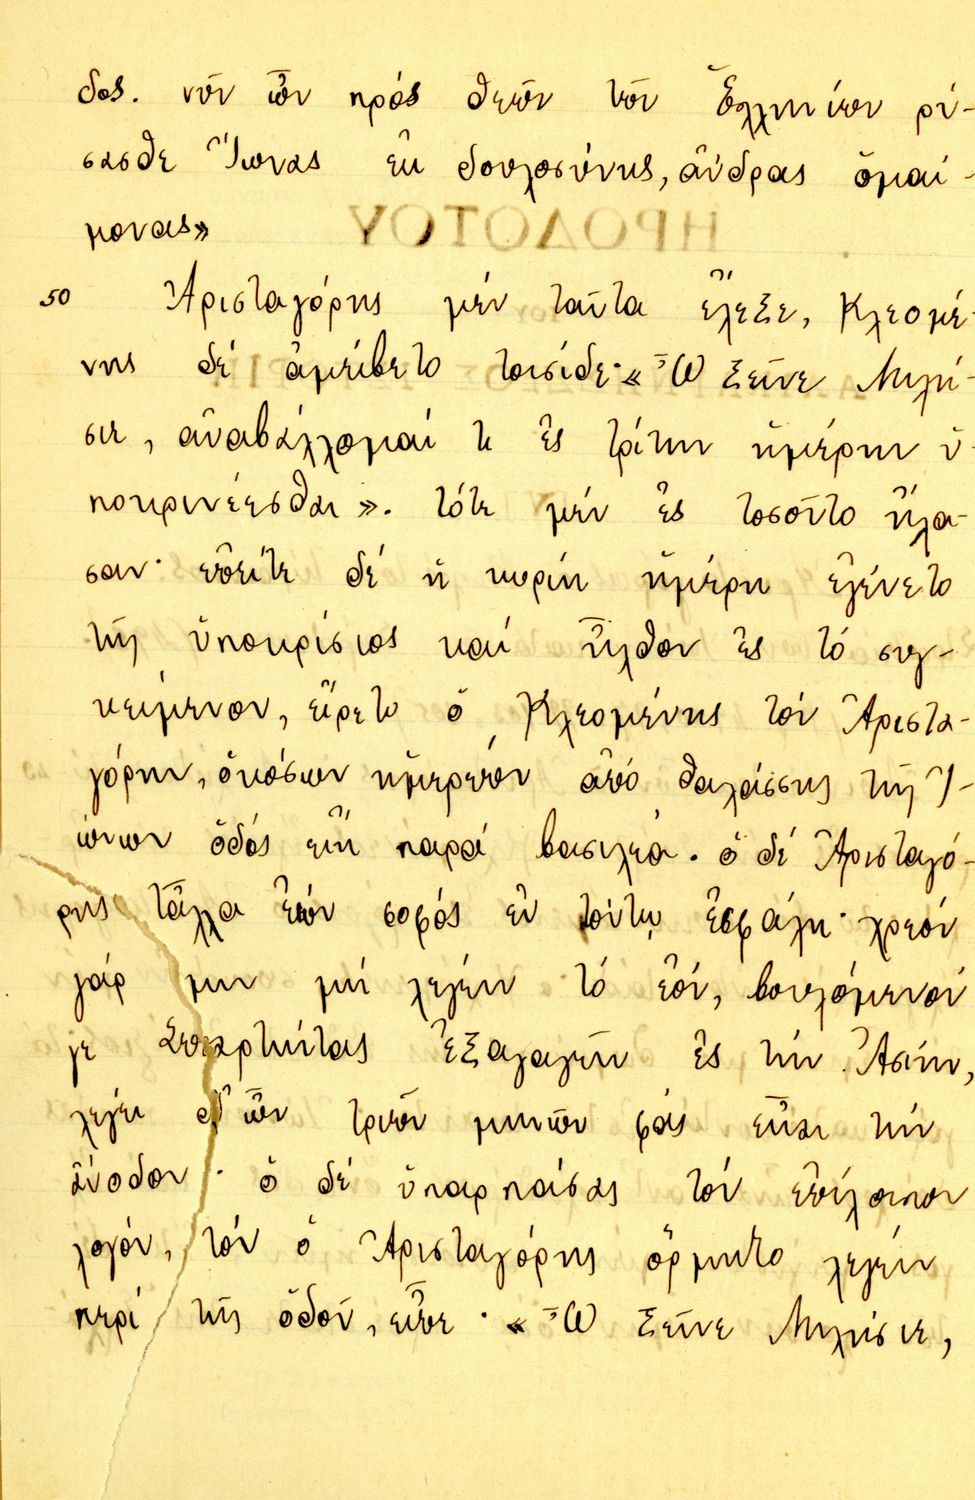 δος. νῦν ὦν πρὸς θεῶν τῶν Ἑλληνίων ῥύ-
σασθε Ἴωνας ἐκ δουλοσύνης, ἄνδρας ὁμαί-
μονας»
ΗΡΟΔΟΤΟΥ
50 Ἀρισταγόρης μὲν ταῦτα ἔλεξε, Κλεομέ-
νης δὲ ἀμείβετο τοισίδε· «Ὦ ξεῖνε Μιλή-
σιε, ἀναβάλλομαί τε ἐς τρίτην ἡμέρην ὑ-
ποκρινέεσθαι». τότε μὲν ἐς τοσοῦτο ἤλα-
σαν· ἐπείτε δὲ ἡ κυρίη ἡμέρη ἐγένετο
τῆς ὑποκρίσιος καὶ ἦλθον ἐς τὸ συγ-
κείμενον, εἴρετο ὁ Κλεομένης τὸν Ἀριστα-
γόρην, ὁκόσων ἡμερέων ἀπὸ θαλάσσης τῆς Ἰ-
ώνων ὁδὸς εἴη παρὰ βασιλέα. ὁ δὲ Ἀρισταγό-
ρης τἆλλα ἐὼν σοφὸς ἐν τούτῳ ἐσφάλη· χρεὸν
γάρ μιν μὴ λέγειν τὸ ἐόν, βουλόμενόν
γε Σπαρτιήτας ἐξαγαγεῖν ἐς τὴν Ἀσίην,
λέγει δ' ὦν τριῶν μηνῶν φὰς εἶναι τὴν
ἄνοδον· ὁ δὲ ὑπαρπάσας τὸν ἐπίλοιπον
λόγον, τὸν ὁ Ἀρισταγόρης ὅρμητο λέγειν
περὶ τῆς ὁδοῦ, εἶπε· «Ὦ ξεῖνε Μιλήσιε,